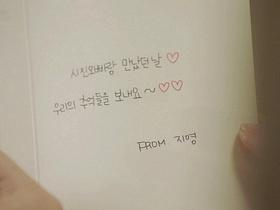 시진오빠랑 만났던날 ♡
우리의 추억들을 보내요 ~ ♡♡
FROM. 지영